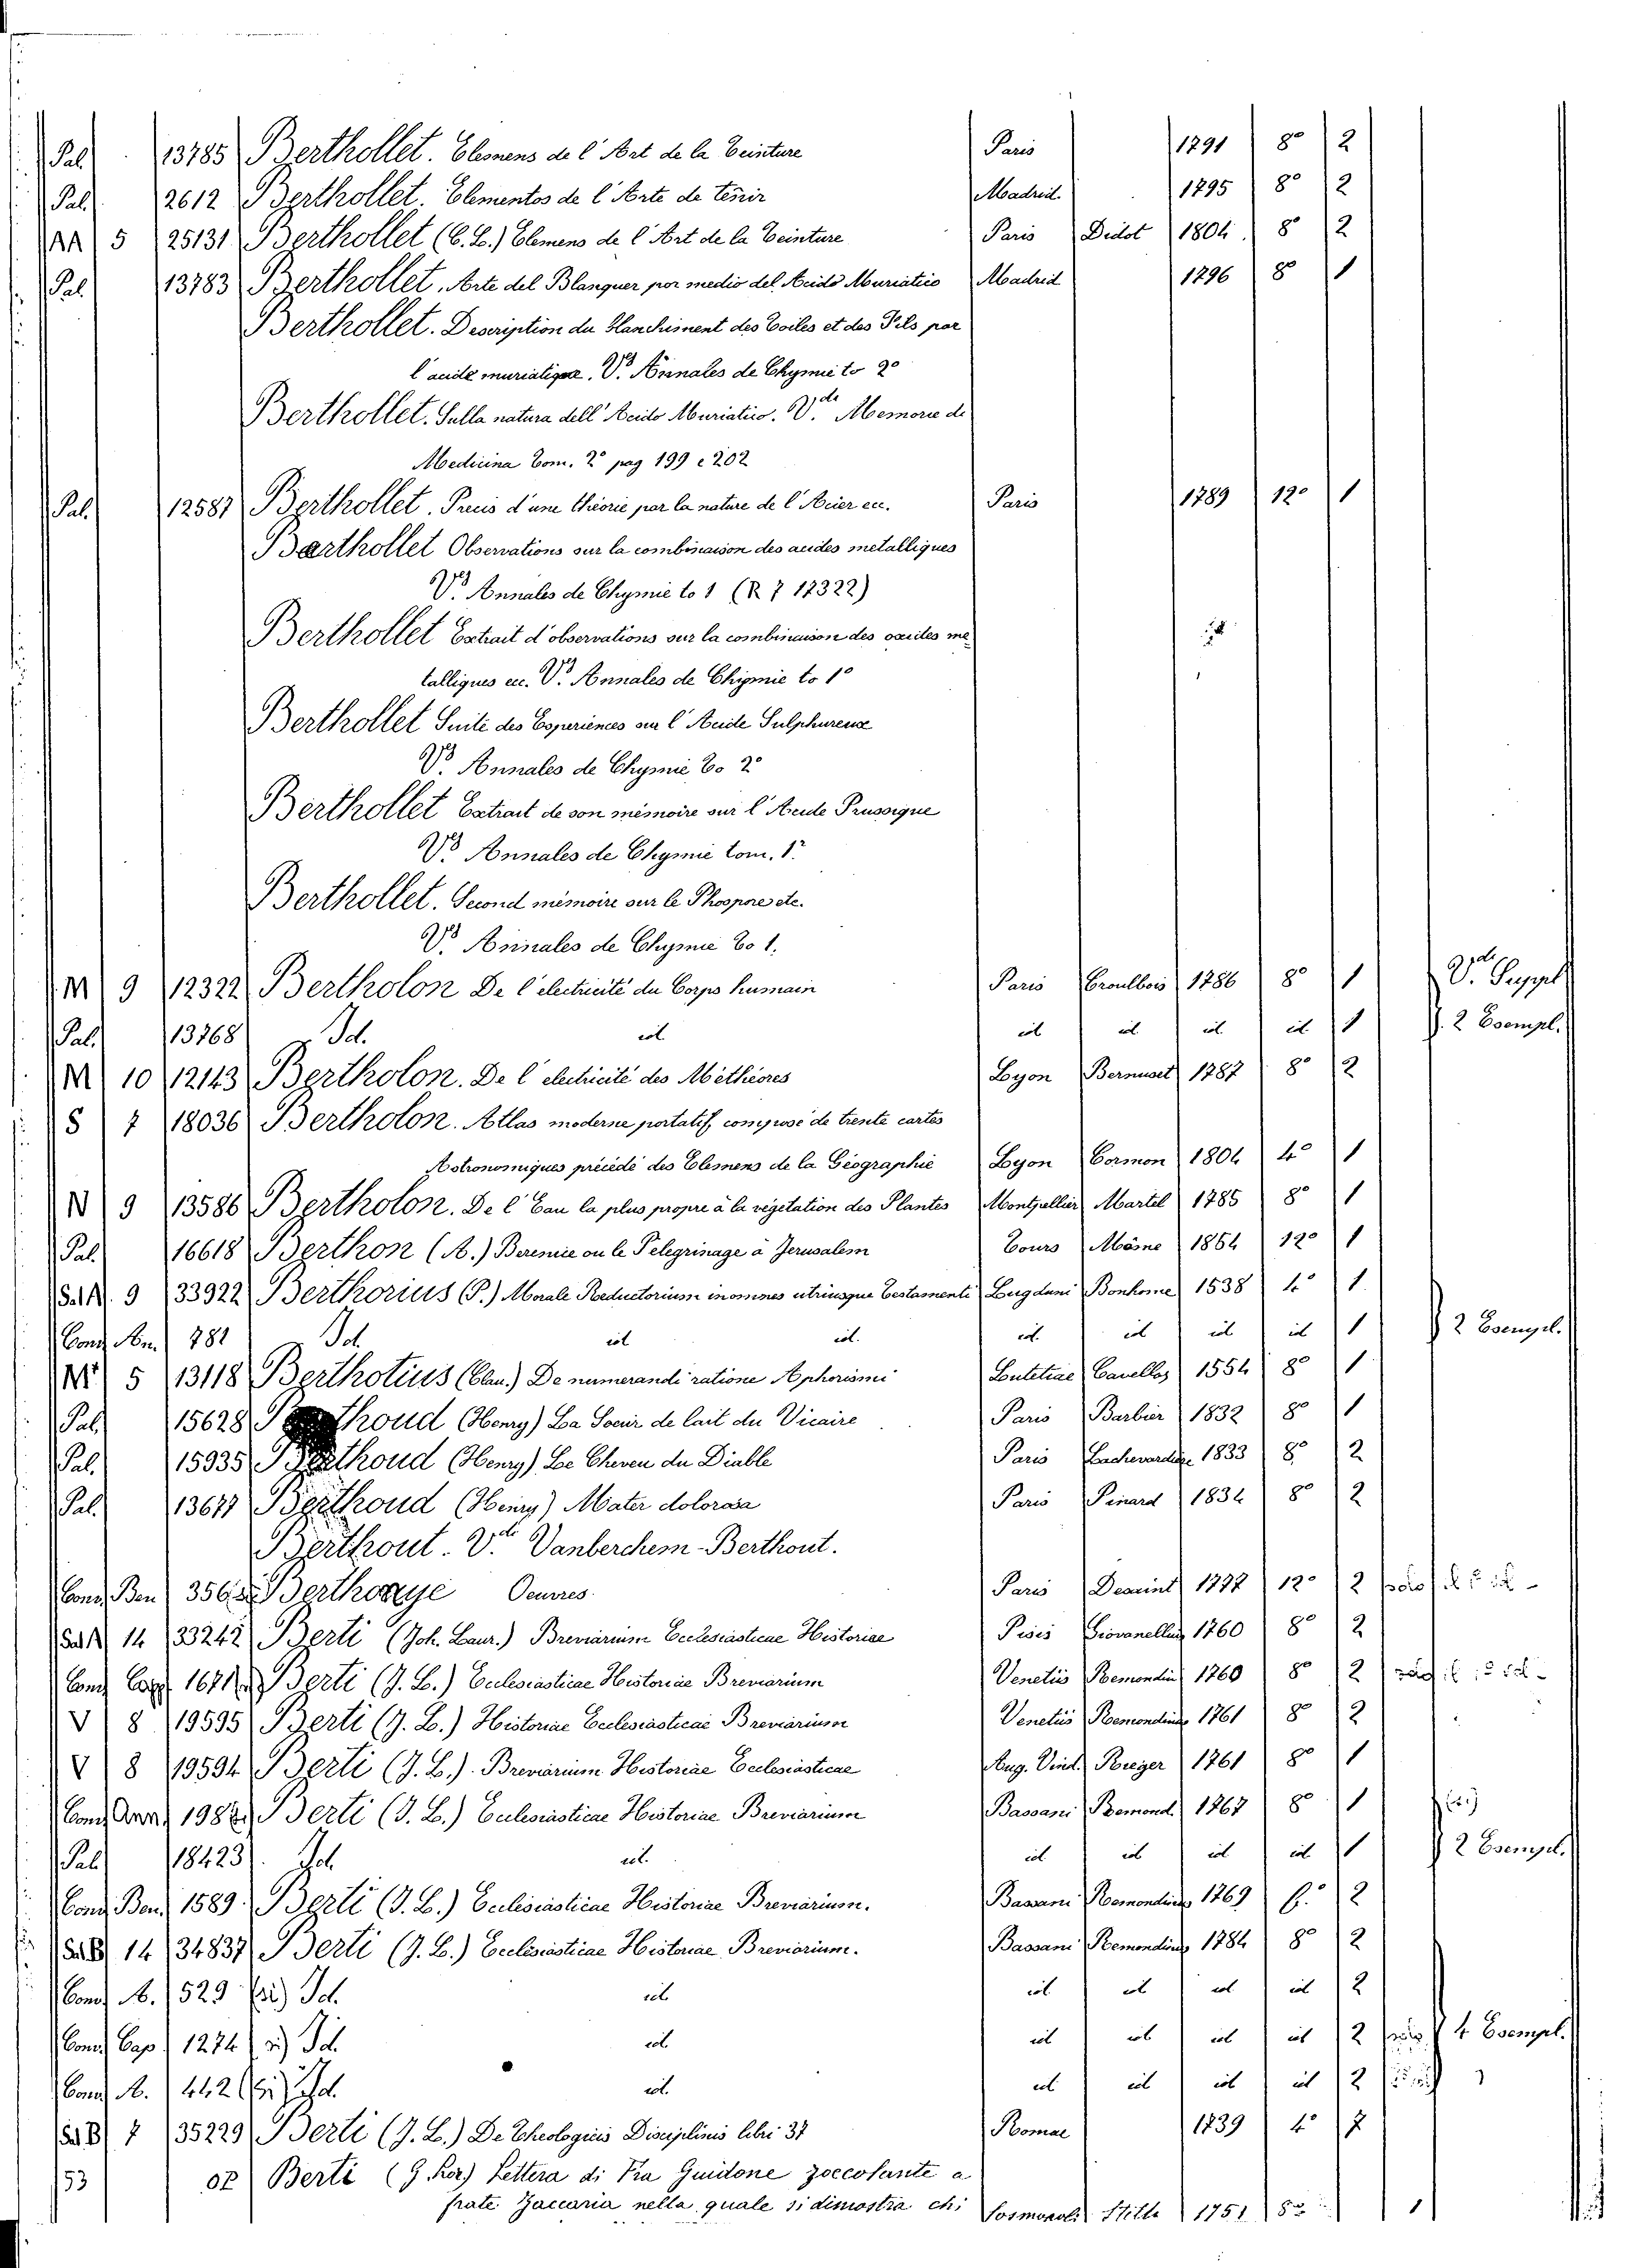 Pal. 13785 Berthollet. Elemens de l'Art de la Teinture Paris 1791 8° 2
Pal. 2612 Berthollet. Elementos de l'Arte de tenir Madrid. 1795 8° 2
AA 5 25131 Berthollet (C. L.) Elemens de l'Art de la Teinture Paris Didot 1804 8° 2
Pal. 13783 Berthollet. Arte del Blanquer por medio del Acido Muriatico Madrid 1796 8° 1
Berthollet. Description du blanchiment des Toiles et des Fils par
l'acide muriatique. V. Annales de Chymie to 2°
Berthollet. Sulla natura dell'Acido Muriatico. V.de Memorie di
Medicina Tom. 2° pag 199 e 202
Pal. 12587 Berthollet. Precis d'une théorie par la nature de l'Acier ec. Paris 1789 12° 1
Berthollet Observations sur la combinaison des acides metalliques
V. Annales de Chymie to 1 (R 7 17322)
Berthollet Extrait d'observations sur la combinaison des oxcides me
talliques ec. V. Annales de Chymie to 1°
Berthollet Suite des Experiences sur l'Acide Sulphureux
V. Annales de Chymie To 2°
Berthollet Extrait de son mémoire sur l'Acide Prussique
V. Annales de Chymie tom. 1°
Berthollet. Second mémoire sur le Phospore etc.
V. Annales de Chymie To 1.
M 9 12322 Bertholon De l'électricité du Corps humain Paris Croullbois 1786 8° 1 V.de Suppl
Pal. 13768 Id. id. id id. id. id. 1 2 Esempl.
M 10 12143 Bertholon. De l'electricité des Méthéores Lyon Bernuset 1787 8° 2
S 7 18036 Bertholon. Atlas moderne portatif, composé de trente cartes
Astronomiques précédé des Elemens de la Géographie Lyon Cormon 1804 4° 1
N 9 13586 Bertholon. De l'Eau la plus propre à la végetation des Plantes Montpellier Martel 1785 8° 1
Pal. 16618 Berthon (A.) Berenice ou le Pelegrinage a Jerusalem Tours Mâme 1854 12° 1
Sal A. 9 33922 Berthorius (P.) Morale Reductorium inomnes utriusque Testamenti Lugduni Bonhome 1538 4° 1
Cons An. 781 Id. id. id. id. id id id 1 2 Esempl.
M 5 13118 Berthotius (Clau.) De numerandi ratione Aphorismi Lutetiae Cavellos 1554 8° 1
Pal. 15628 Berthoud (Henry) La Soeur de lait du Vicaire Paris Barbier 1832 8° 1
Pal. 15935 Berthoud (Henry) Le Cheveu du Diable Paris Lachevardiere 1833 8° 2
Pal. 13677 Berthoud (Henry) Mater dolorosa Paris Pinard 1834 8° 2
Berthout. V.de Vanberchem-Berthout.
Cons Ben 356 Berthoye Oeuvres Paris 1777 12° 2
Sal A 14 33242 Berti (Joh. Laur.) Breviarium Ecclesiasticae Historiae Pisis Giovanellius 1760 8° 2
Cons Capp 1671 Berti (J. L.) Ecclesiasticae Historiae Breviarium Venetiis Remondini 1760 8° 2
V 8 19595 Berti (J. L.) Historiae Ecclesiasticae Breviarium Venetiis Remondinius 1761 8° 2
V 8 19594 Berti (J. L.). Breviarium Historiae Ecclesiasticae Aug. Vind. Rieger 1761 8° 1
Cons 198 Berti (J. L.) Ecclesiasticae Historiae Breviarium Bassani Remond. 1767 8° 1
Pal 18423 Id. id. id. id id id 1 2 Esempl.
Cons Ben. 1589 Berti (J. L.) Ecclesiasticae Historiae Breviarium. Bassani Remondinius 1769 2
Sal B 14 34837 Berti (J. L.) Ecclesiasticae Historiae Breviarium. Bassani Remondinius 1784 8° 2
Cons A. 529 Id. id. id. id id id 2
Cons Cap 1274 Id. id. id id id id 2 4 Esempl.
Cons A. 442 Id. id. id id id id 2
Sal B 7 35229 Berti (J. L.) De Theologicis Disciplinis libri 37 Romae 1739 4° 7
53 Berti (G. ) Lettera di Fra Guidone zoccolante a
frate Zaccaria nella quale si dimostra chi Cosmopoli 1751 8° 1